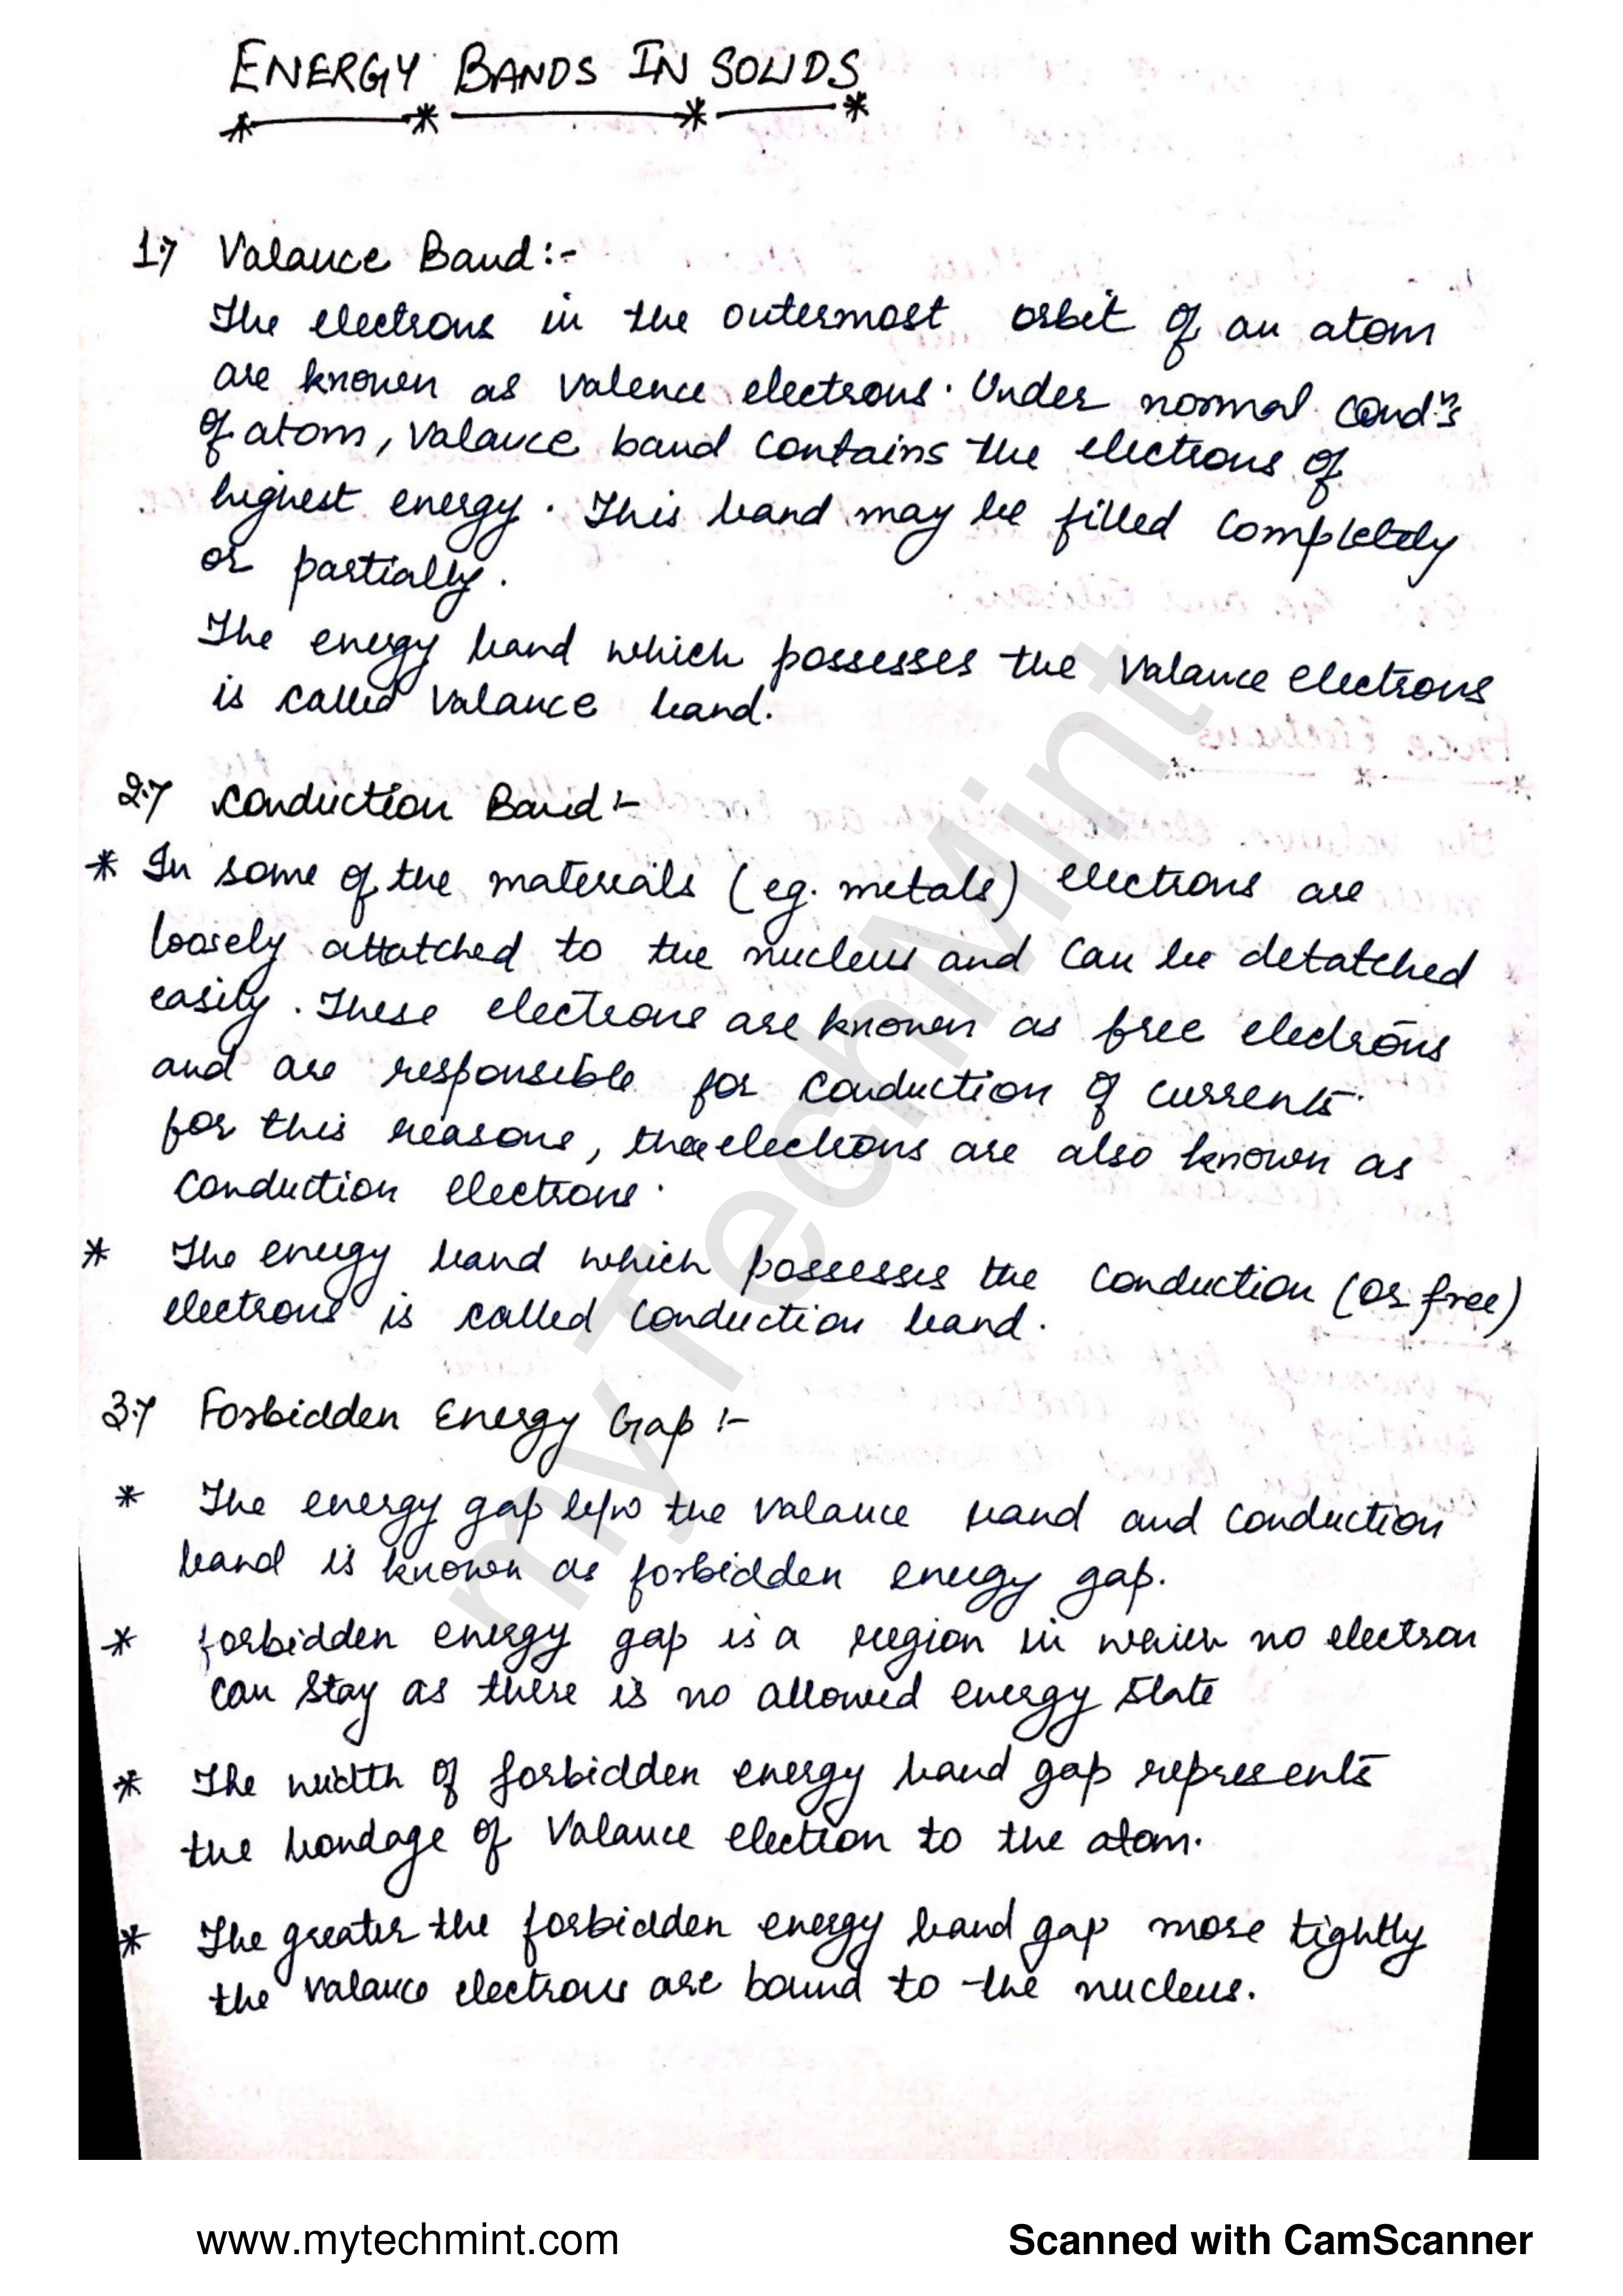 ENERGY BANDS IN SOLIDS
1.> Valance Band:-
The electrons in the outermost orbit of an atom
are known as valence electrons. Under normal condn's
of atom, Valance band contains the electrons of
highest energy. This band may be filled completely
or partially.
The energy band which possesses the Valance electrons
is called Valance band.
2.> Conduction Band:-
* In some of the materials (eg. metals) electrons are
loosely attatched to the nucleus and can be detatched
easily. These electrons are known as free electrons
and are responsible for conduction of currents.
for this reasons, these electrons are also known as
conduction electrons.
* The energy band which possesses the conduction (or free)
electrons is called conduction band.
3.> Forbidden Energy Gap :-
* The energy gap b/w the valance band and conduction
band is known as forbidden energy gap.
* forbidden energy gap is a region in which no electron
can stay as there is no allowed energy state
* The width of forbidden energy band gap represents
the bondage of Valance election to the atom.
* The greater the forbidden energy band gap more tightly
the valance electrons are bound to the nucleus.
myTechMint
www.mytechmint.com
Scanned with CamScanner